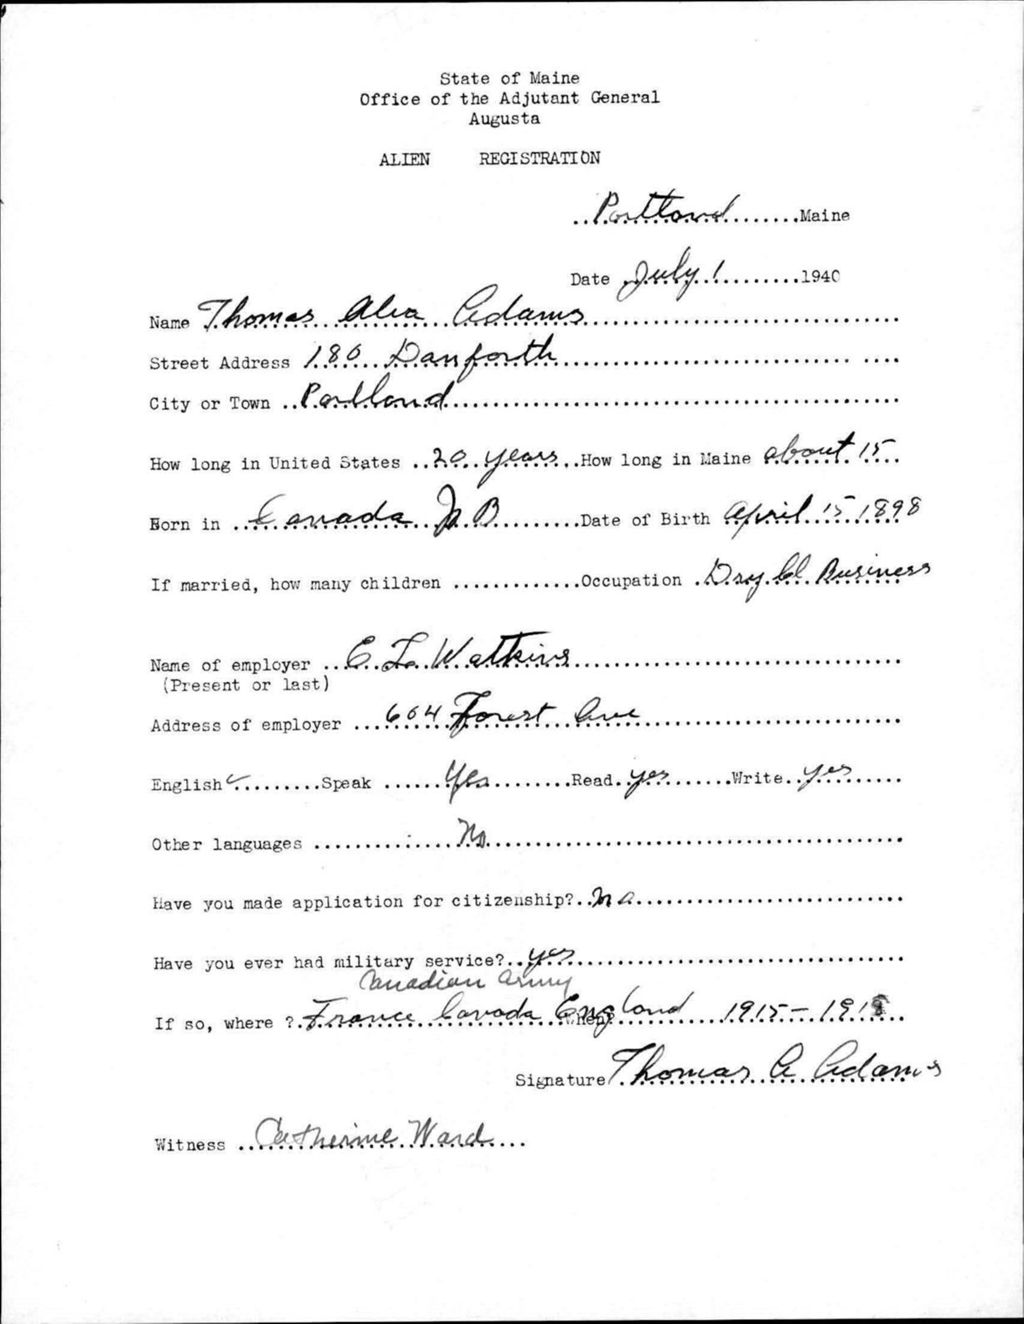 State of Maine
Office of the Adjutant General
Augusta
ALIEN REGISTRATION
Portland Maine
Date July 1 1940
Name Thomas Alva Adams
Street Address 186 Danforth
City or Town Portland
How long in United States 20 years How long in Maine about 15
Born in Canada N B Date of Birth April 15 1898
If married, how many children Occupation Dry Cl Business
Name of employer E. L. Watkins
(Present or last)
Address of employer 604 Forest Ave
English Speak Yes Read yes Write yes
Other languages No
Have you made application for citizenship? No
Have you ever had military service? yes
Canadian Army
If so, where ? France Canada England When? 1915 – 1918
Signature Thomas A Adams
Witness Catherine Ward